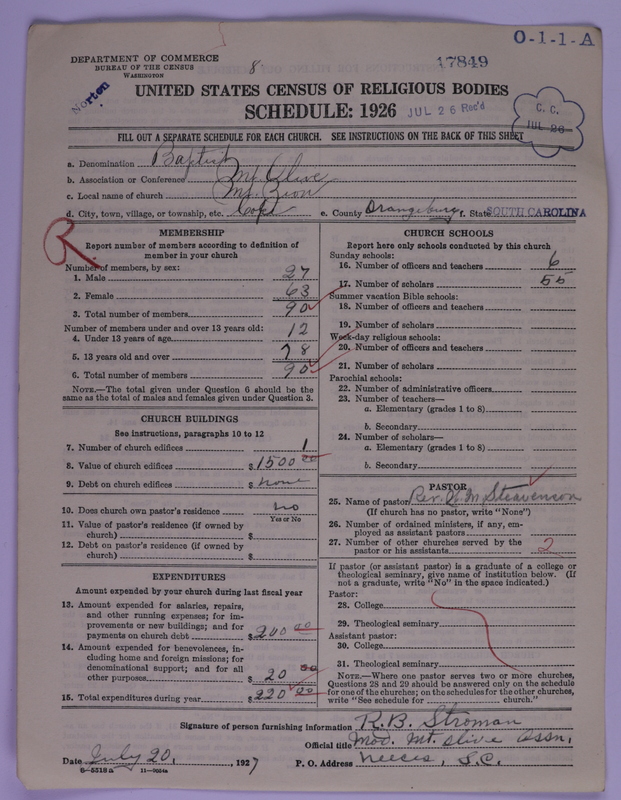 O-1-1-A
DEPARTMENT OF COMMERCE
BUREAU OF THE CENSUS
WASHINGTON
8
17849
Norton
UNITED STATES CENSUS OF RELIGIOUS BODIES
SCHEDULE: 1926
JUL 26 Rec'd
C. C.
JUL 26
FILL OUT A SEPARATE SCHEDULE FOR EACH CHURCH. SEE INSTRUCTIONS ON THE BACK OF THIS SHEET
a. Denomination Baptist
b. Association or Conference Mt Olive
c. Local name of church Mt. Zion
d. City, town, village, or township, etc. Cope e. County Orangeburg f. State SOUTH CAROLINA
MEMBERSHIP
Report number of members according to definition of
member in your church
Number of members, by sex:
1. Male 27
2. Female 63
3. Total number of members 90
Number of members under and over 13 years old:
4. Under 13 years of age 12
5. 13 years old and over 78
6. Total number of members 90
NOTE.—The total given under Question 6 should be the
same as the total of males and females given under Question 3.
CHURCH BUILDINGS
See instructions, paragraphs 10 to 12
7. Number of church edifices 1
8. Value of church edifices $1500 00
9. Debt on church edifices $ none
10. Does church own pastor's residence no
Yes or No
11. Value of pastor's residence (if owned by
church) $
12. Debt on pastor's residence (if owned by
church) $
EXPENDITURES
Amount expended by your church during last fiscal year
13. Amount expended for salaries, repairs,
and other running expenses; for im-
provements or new buildings; and for
payments on church debt $200 00
14. Amount expended for benevolences, in-
cluding home and foreign missions; for
denominational support; and for all
other purposes $ 20 00
15. Total expenditures during year $220 00
CHURCH SCHOOLS
Report here only schools conducted by this church
Sunday schools:
16. Number of officers and teachers 6
17. Number of scholars 55
Summer vacation Bible schools:
18. Number of officers and teachers
19. Number of scholars
Week-day religious schools:
20. Number of officers and teachers
21. Number of scholars
Parochial schools:
22. Number of administrative officers
23. Number of teachers—
a. Elementary (grades 1 to 8)
b. Secondary
24. Number of scholars—
a. Elementary (grades 1 to 8)
b. Secondary
PASTOR
25. Name of pastor Rev. J. M. Steavenson
(If church has no pastor, write "None")
26. Number of ordained ministers, if any, em-
ployed as assistant pastors
27. Number of other churches served by the
pastor or his assistants 2
If pastor (or assistant pastor) is a graduate of a college or
theological seminary, give name of institution below. (If
not a graduate, write "No" in the space indicated.)
Pastor:
28. College
29. Theological seminary
Assistant pastor:
30. College
31. Theological seminary
NOTE.—Where one pastor serves two or more churches,
Questions 28 and 29 should be answered only on the schedule
for one of the churches; on the schedules for the other churches,
write "See schedule for church."
Signature of person furnishing information R. B. Stroman
Official title Mod. Mt. Olive Assn,
Date July 20, , 1927 P. O. Address Neeces, S.C.
8—5518a 11—9004a